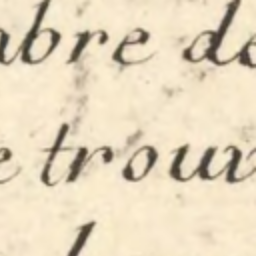 abre de
e trouv